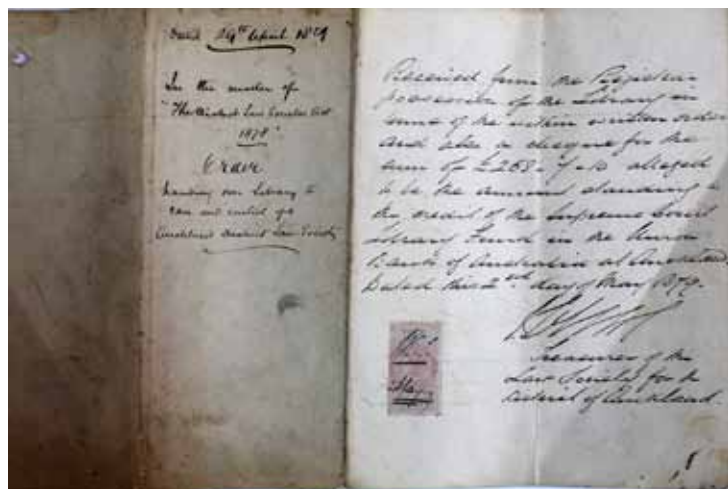 Dated 29th April 1879
In the matter of
"The District Law Societies Act
1878"
Order
handing over Library to
care and control of
Auckland District Law Society
Received from the Registrar
possession of the Library in
terms of the within written order
and also a cheque for the
sum of £268. 7. alleged
to be the amount standing to
the credit of the Supreme Court
Library Fund in the Union
Bank of Australia at Auckland
Dated this 2nd day of May 1879.
Treasurer of the
Law Society for the
District of Auckland.